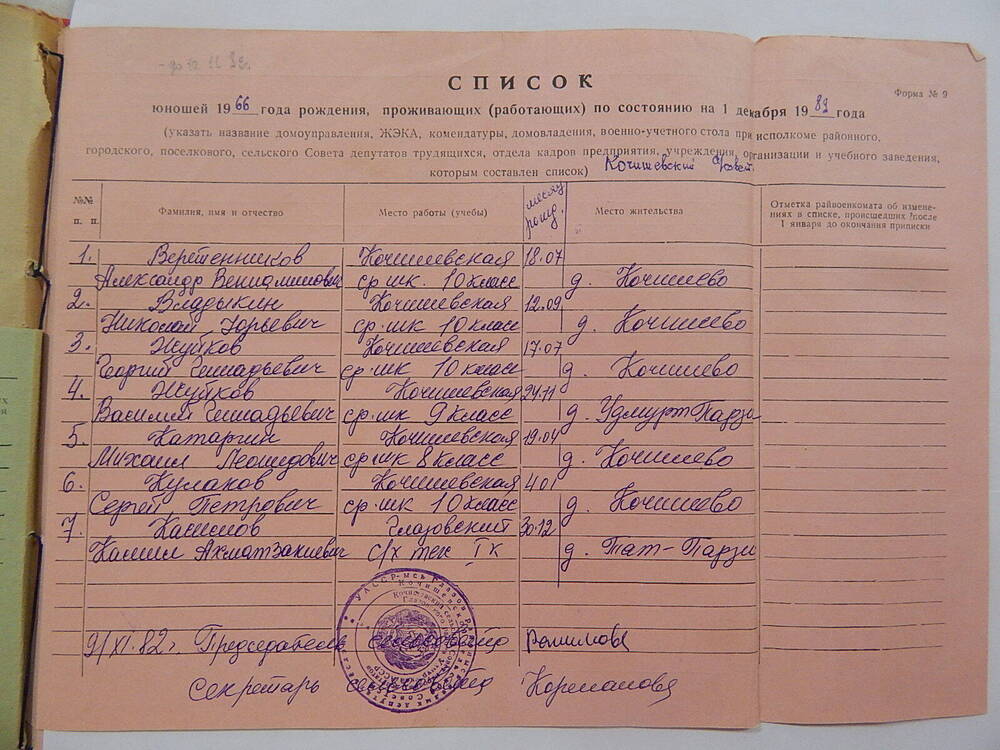 -до 12 11 82г.
Форма № 9
СПИСОК
юношей 1966 года рождения, проживающих (работающих) по состоянию на 1 декабря 1982 года
(указать название домоуправления, ЖЭКА, комендатуры, домовладения, военно-учетного стола при исполкоме районного,
городского, поселкового, сельского Совета депутатов трудящихся, отдела кадров предприятия, учреждения, организации и учебного заведения,
которым составлен список) Кочишевский с/совет
№№ п. п. Фамилия, имя и отчество Место работы (учебы) месяц рожд. Место жительства Отметка райвоенкомата об изменениях в списке, происшедших после 1 января до окончания приписки
1. Веретенников Кочишевская 18.07
Александр Вениаминович ср. шк. 10 класс д. Кочишево
2. Владыкин Кочишевская 12.09
Николай Юрьевич ср. шк 10 класс д. Кочишево
3. Жуйков Кочишевская 17.07
Георгий Геннадьевич ср. шк 10 класс д. Кочишево
4. Жуйков Кочишевская 24.11
Василий Геннадьевич ср. шк 9 класс д. Удмурт Парзи
5. Катаргин Кочишевская 19.04
Михаил Леонидович ср. шк 8 класс д. Кочишево
6. Кулаков Кочишевская 4.01
Сергей Петрович ср. шк 10 класс д. Кочишево
7. Касимов Глазовский 30.12
Камил Ахматзакиевич с/х тех I к д. Тат-Парзи
9/XI.82г. Председатель сельсовета
Секретарь сельсовета